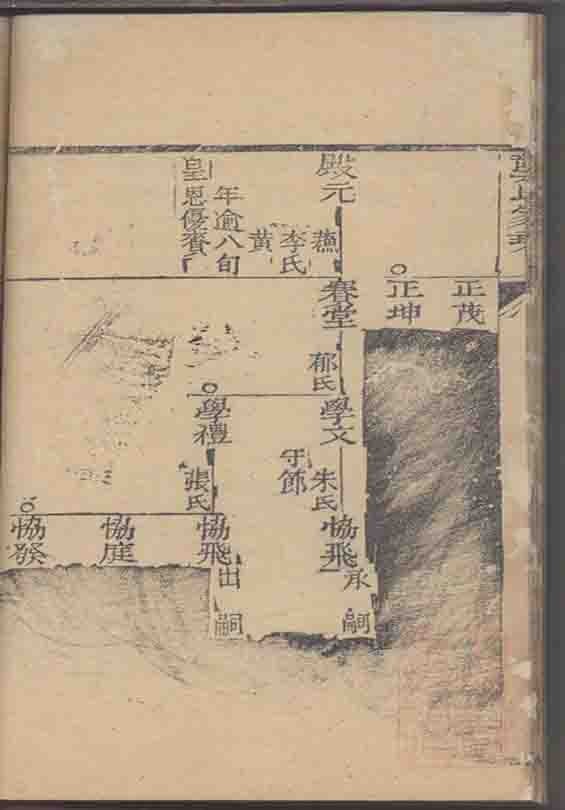 正茂
正坤
殿元
蘓
李氏
黄
年逾八旬
皇恩優賚
春堂
郁氏
學文
朱氏
守節
學禮
張氏
協飛
承嗣
協飛
出嗣
協庭
協發